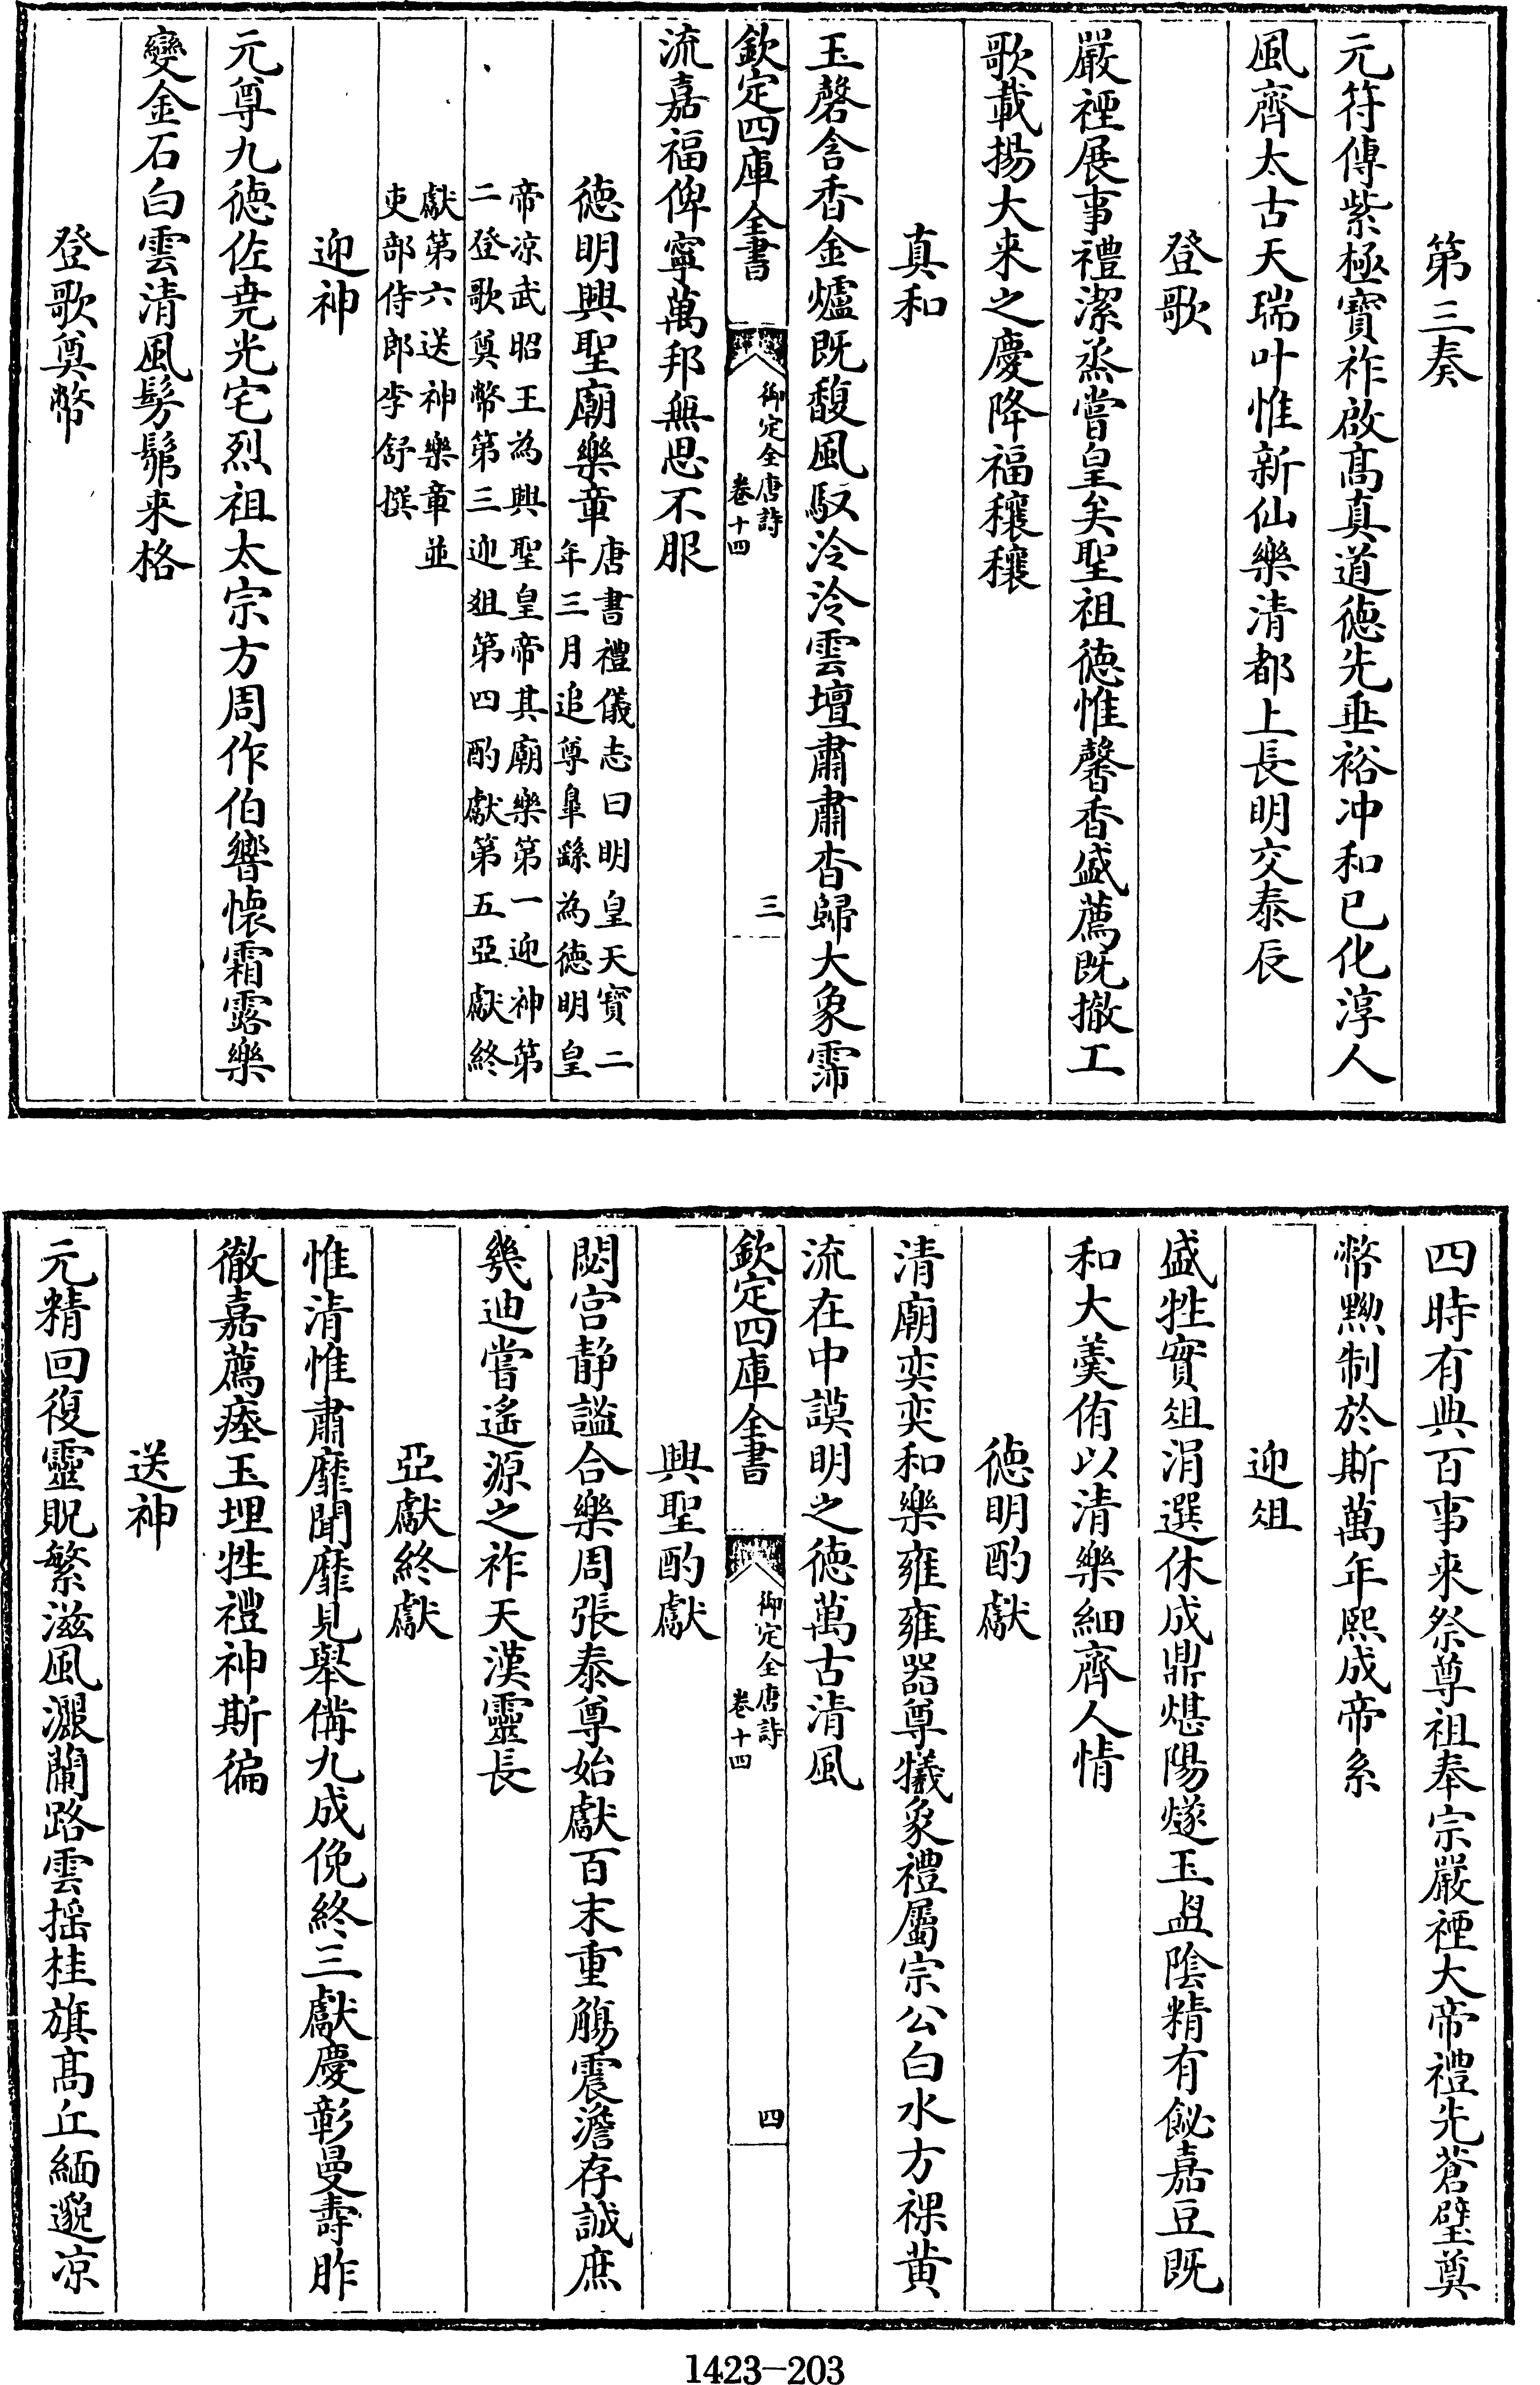 第三奏
元符傳紫極寶祚啟髙真道徳先垂裕冲和已化淳人
風齊太古天瑞叶惟新仙樂清都上長明交泰辰
登歌
嚴禋展事禮潔烝嘗皇矣聖祖徳惟馨香盛薦既撤工
歌載揚大来之慶降福穰穰
真和
玉磬含香金爐既馥風馭泠泠雲壇肅肅杳歸大象霈
欽定四庫全書
御定全唐詩
卷十四
三
流嘉福俾寧萬邦無思不服
徳明興聖廟樂章
唐書禮儀志曰明皇天寶二
年三月追尊臯繇為徳明皇
帝凉武昭王為興聖皇帝其廟樂第一迎神第
二登歌奠幣第三迎俎第四酌獻第五亞獻終
獻第六送神樂章並
吏部侍郎李舒撰
迎神
元尊九徳佐尭光宅烈祖太宗方周作伯響懐霜露樂
變金石白雲清風髣髴来格
登歌奠幣
四時有典百事来祭尊祖奉宗嚴禋大帝禮先蒼璧奠
幣黝制於斯萬年熙成帝系
迎俎
盛牲實俎涓選休成鼎煁陽燧玉盥陰精有飶嘉豆既
和大羹侑以清樂細齊人情
徳明酌獻
清廟奕奕和樂雍雍器尊犧象禮屬宗公白水方祼黄
流在中謨明之徳萬古清風
欽定四庫全書
御定全唐詩
卷十四
四
興聖酌獻
閟宫静謐合樂周張泰尊始獻百末重觴震澹存誠庶
幾迪嘗遙源之祚天漢靈長
亞獻終獻
惟清惟肅靡聞靡見舉備九成俛終三獻慶彰曼壽胙
徹嘉薦瘞玉埋牲禮神斯徧
送神
元精回復靈貺繁滋風灑蘭路雲揺桂旗髙丘緬邈凉
1423-203